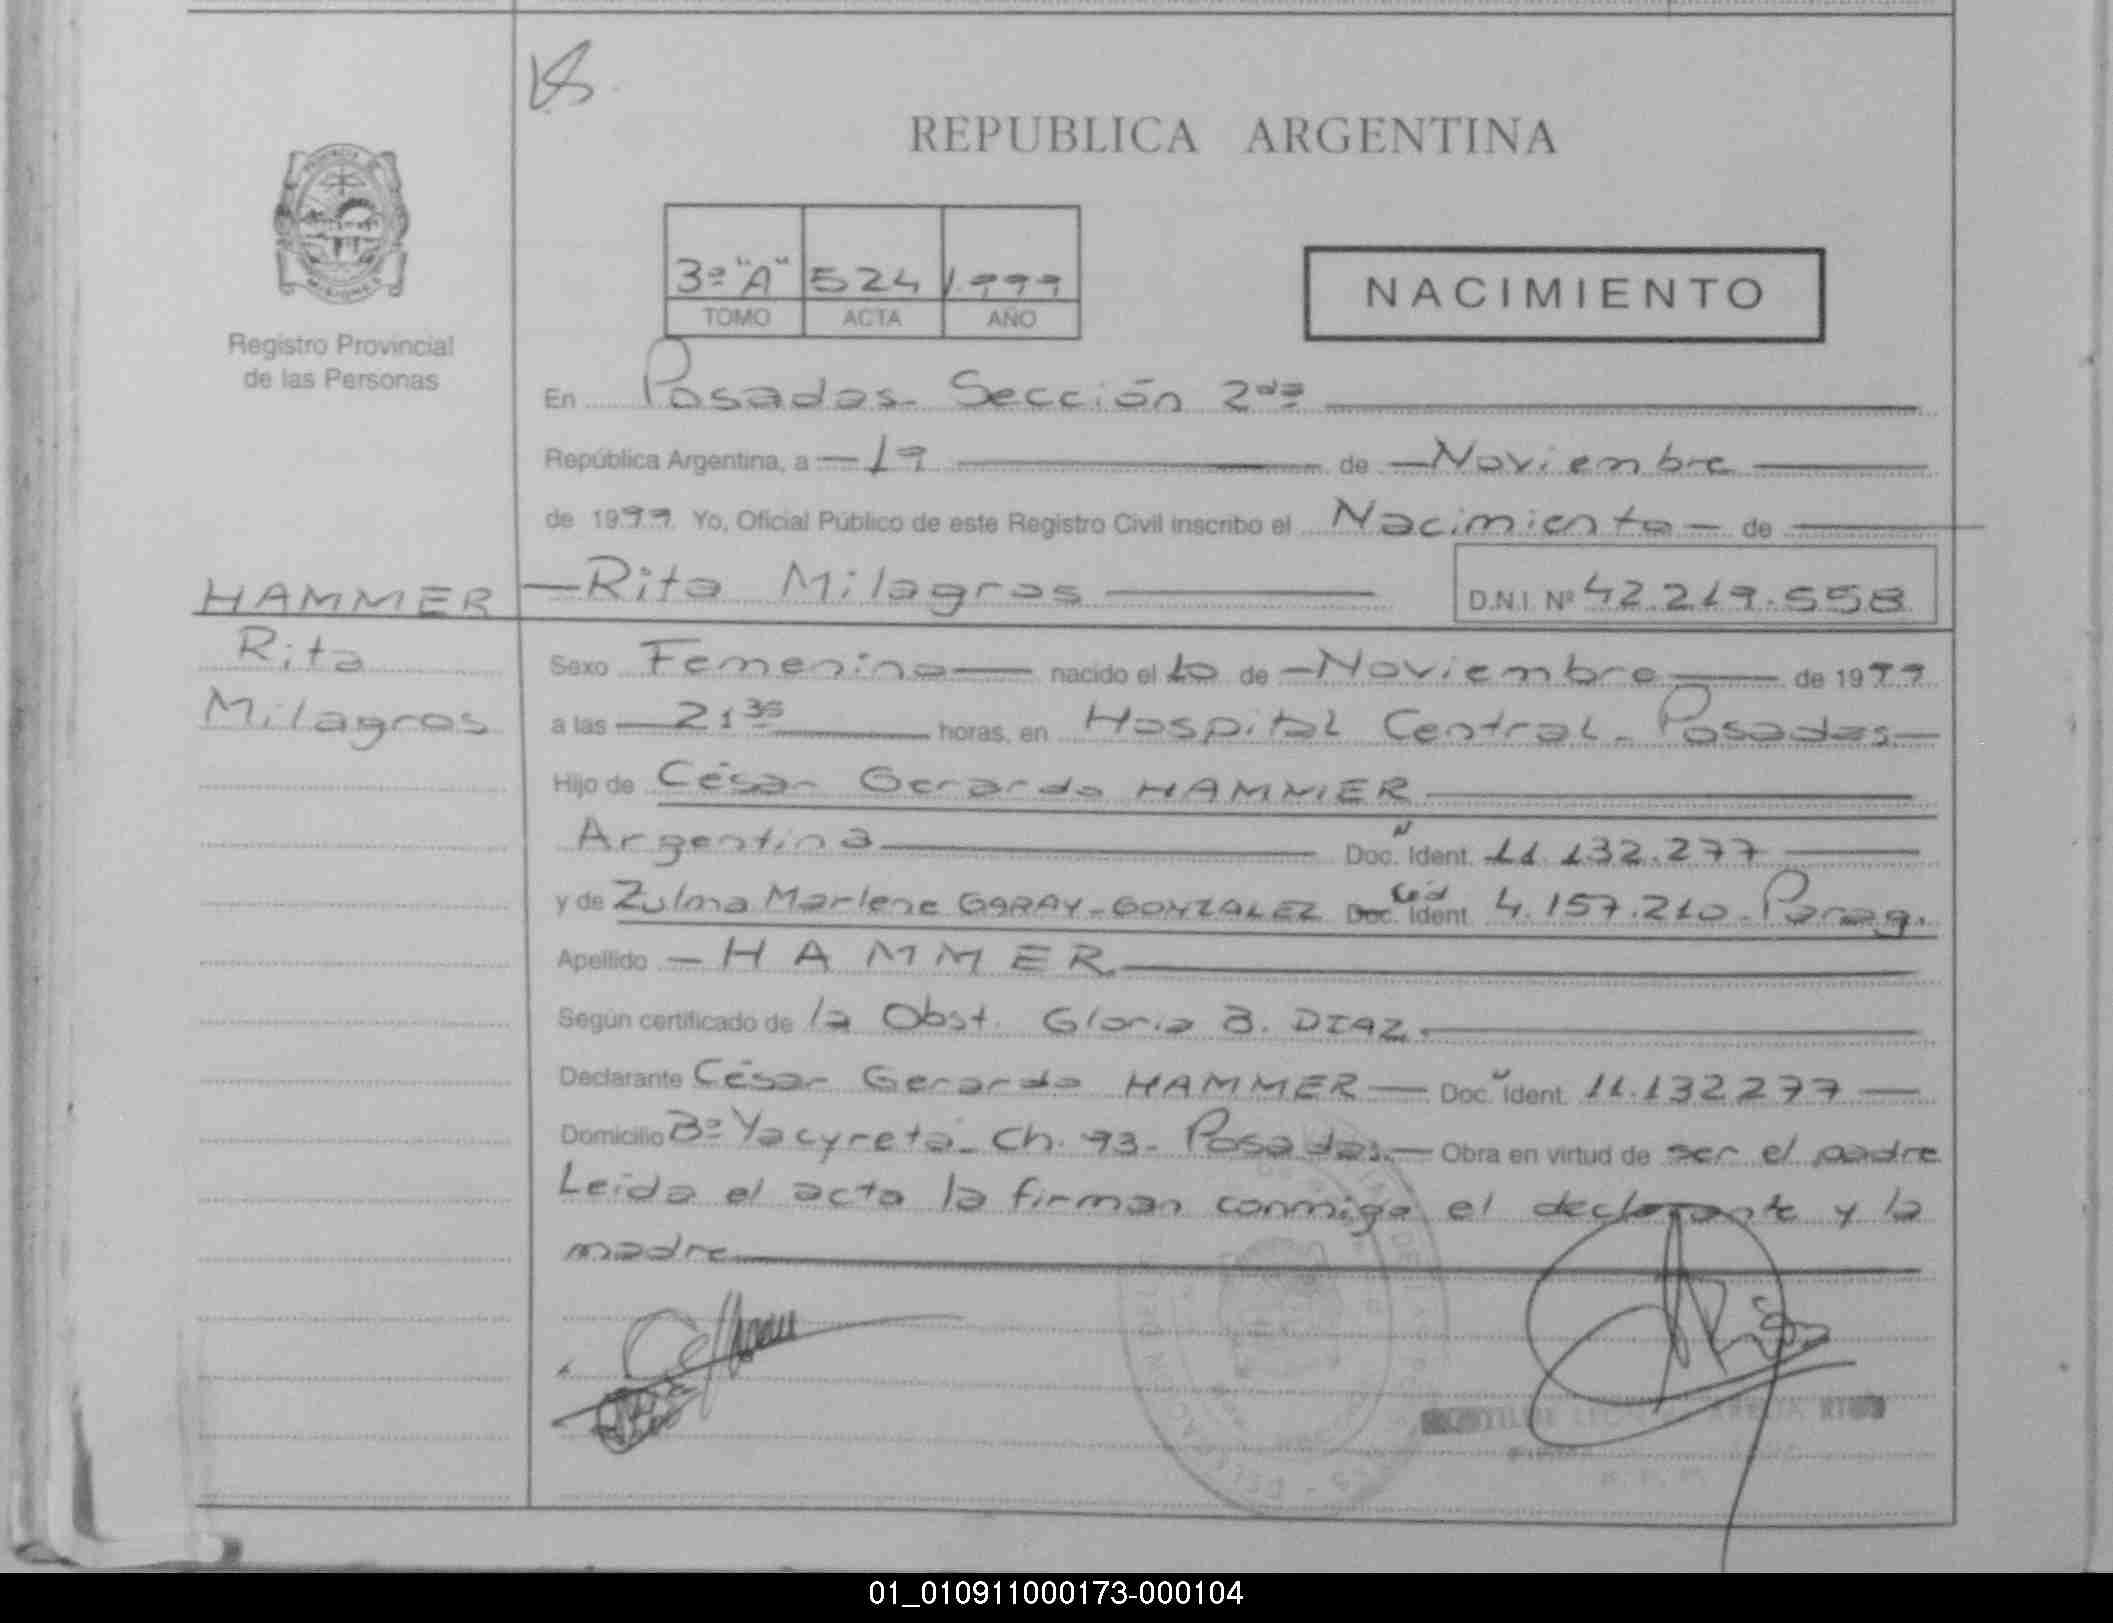 REPUBLICA ARGENTINA
PROVINCIA
MISIONES
Registro Provincial
de las Personas
3º "A" 524 1.999
TOMO ACTA AÑO
NACIMIENTO
En Posadas - Sección 2da
República Argentina, a 19 de Noviembre
de 1999. Yo, Oficial Público de este Registro Civil inscribo el Nacimiento de
HAMMER
Rita
Milagros
Rita Milagros D.N.I. Nº 42.219.558
Sexo Femenino nacido el 10 de Noviembre de 1999
a las 21 35 horas, en Hospital Central - Posadas
Hijo de César Gerardo HAMMER
Argentina Doc. Ident. 11.132.277
y de Zulma Marlene GARAY - GONZALEZ Doc. Ced Ident. 4.157.210 - Parag.
Apellido HAMMER
Según certificado de la Obst. Gloria B. DIAZ.
Declarante César Gerardo HAMMER Doc. Ident. 11.132.277
Domicilio Bº Yacyreta - Ch. 93 - Posadas. Obra en virtud de ser el padre
Leida el acta la firman conmigo el declarante y la
madre
01_010911000173-000104